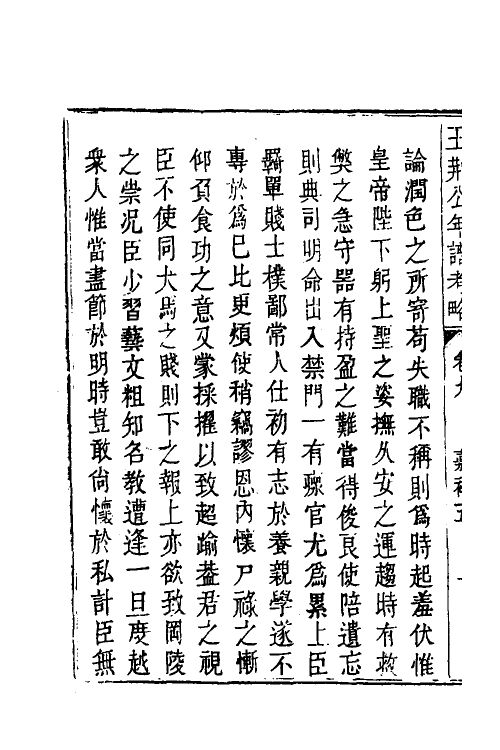 王荆公年譜考略 卷九 嘉祐五
論潤色之所寄苟失職不稱則爲時起羞伏惟
皇帝陛下躬上聖之姿撫久安之運趨時有救
獘之急守器有持盈之難當得俊良使陪遺忘
則典司明命出入禁門一有瘝官尤爲累上臣
羇單賤士樸鄙常人仕初有志於養親學遂不
專於爲己比更煩使稍竊謬恩內懷尸祿之慚
仰負食功之意又蒙採擢以致超踰葢君之視
臣不使同犬馬之賤則下之報上亦欲致岡陵
之崇况臣少習藝文粗知名教遭逢一旦度越
衆人惟當盡節於明時豈敢尙懷於私計臣無